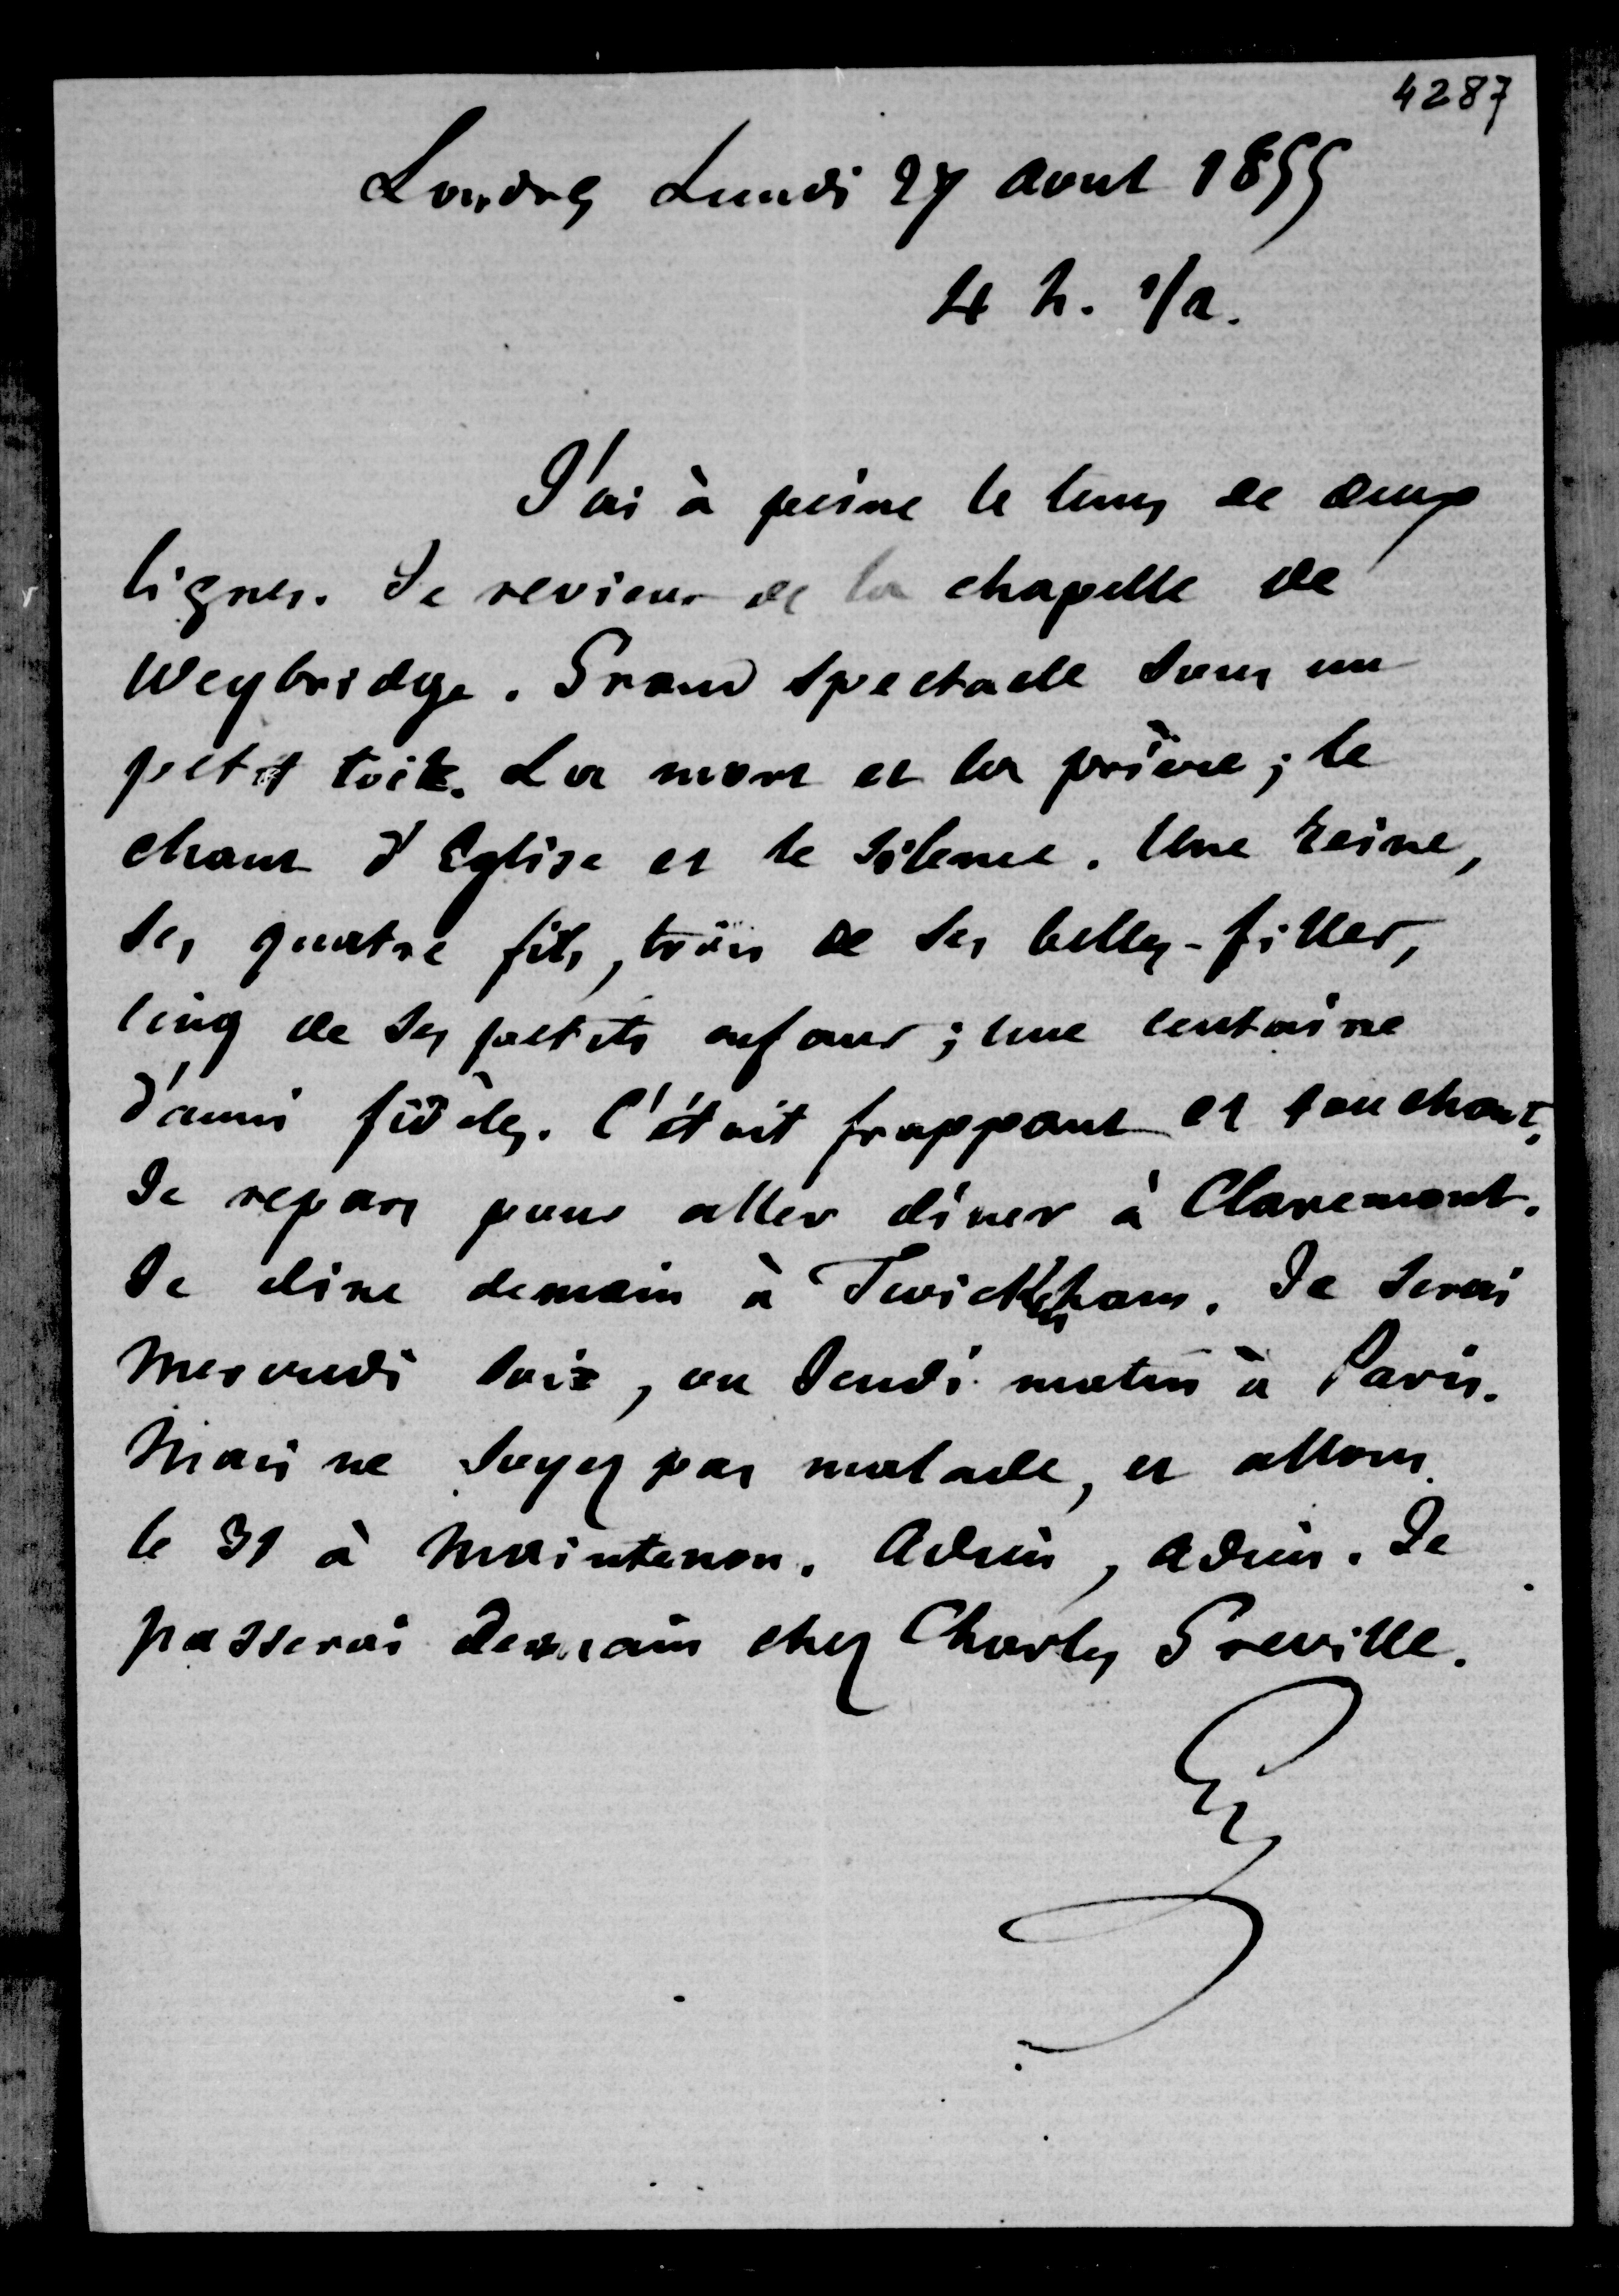 4287
Londres Lundi 27 aout 1855
4 h. 1/2.
J'ai à peine le tems de deux
lignes. Je reviens de la chapelle de
Weybridge. Grand spectacle sous un
petit toit. La mort et la prière ; le
chant d'Eglise et le silence. Une reine,
ses quatre fils, trois de ses belles-filles,
cinq de ses petits enfans ; une centaine
d'amis fidèles. C'étoit frappant et touchant.
Je repars pour aller diner à Claremont.
Je dine demain à Twickenham. Je serai
Mercredi soir, ou Jeudi matin à Paris.
Mais ne soyez pas malade, et allons
le 31 à Maintenon. Adieu, adieu. Je
passerai demain chez Charles Greville.